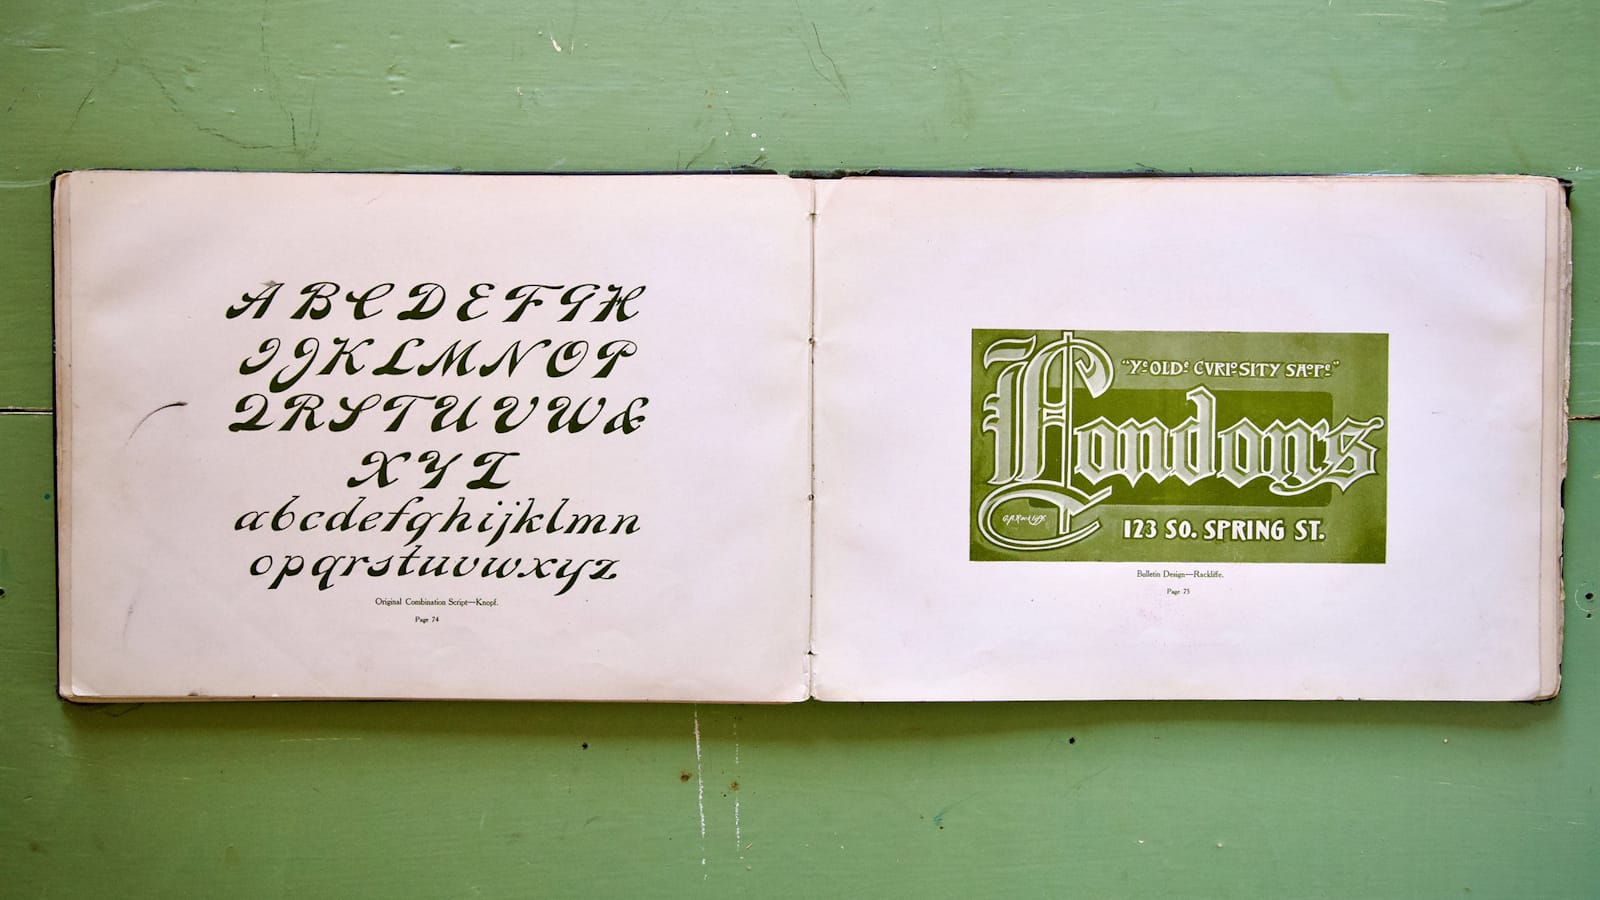 A B C D E F G H
I J K L M N O P
Q R S T U V W &
X Y Z
a b c d e f g h i j k l m n
o p q r s t u v w x y z
Original Combination Script—Knopf.
Page 74
"Ye OLDe CVRIoSITY SHoPe"
London's
123 SO. SPRING ST.
Bulletin Design—Rackliffe.
Page 75